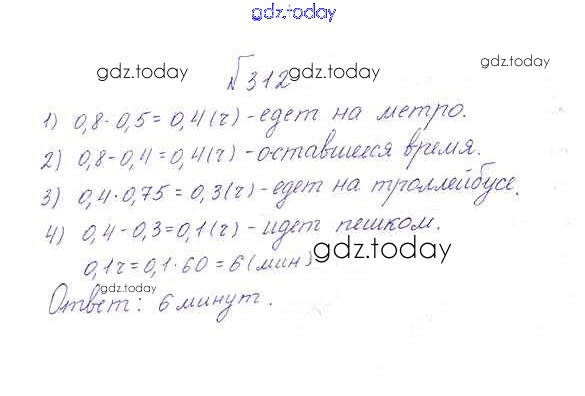 gdz.today
gdz.today
gdz.today
gdz.today
№ 312
1) 0,8 · 0,5 = 0,4 (ч) - едет на метро.
2) 0,8 - 0,4 = 0,4 (ч) - оставшееся время.
3) 0,4 · 0,75 = 0,3 (ч) - едет на троллейбусе.
4) 0,4 - 0,3 = 0,1 (ч) - идет пешком.
gdz.today
0,1 ч = 0,1 · 60 = 6 (мин)
gdz.today
Ответ: 6 минут.